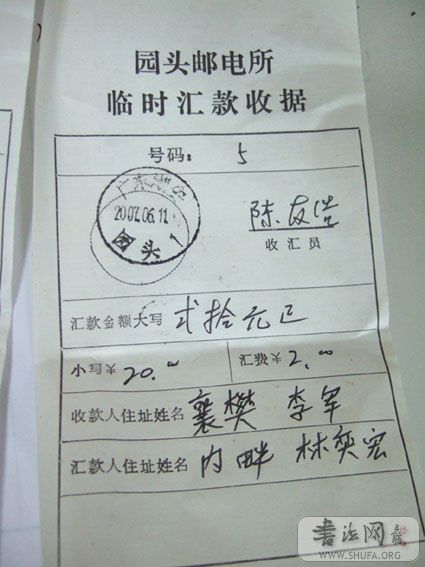 园头邮电所
临时汇款收据
号码： 5
2007.06.11
园头 1
陈友浩
收汇员
汇款金额大写 弍拾元正
小写¥ 20.00 汇费¥ 2.00
收款人住址姓名 襄樊 李军
汇款人住址姓名 内畔 林奕宏
书法网
WWW.SHUFA.ORG